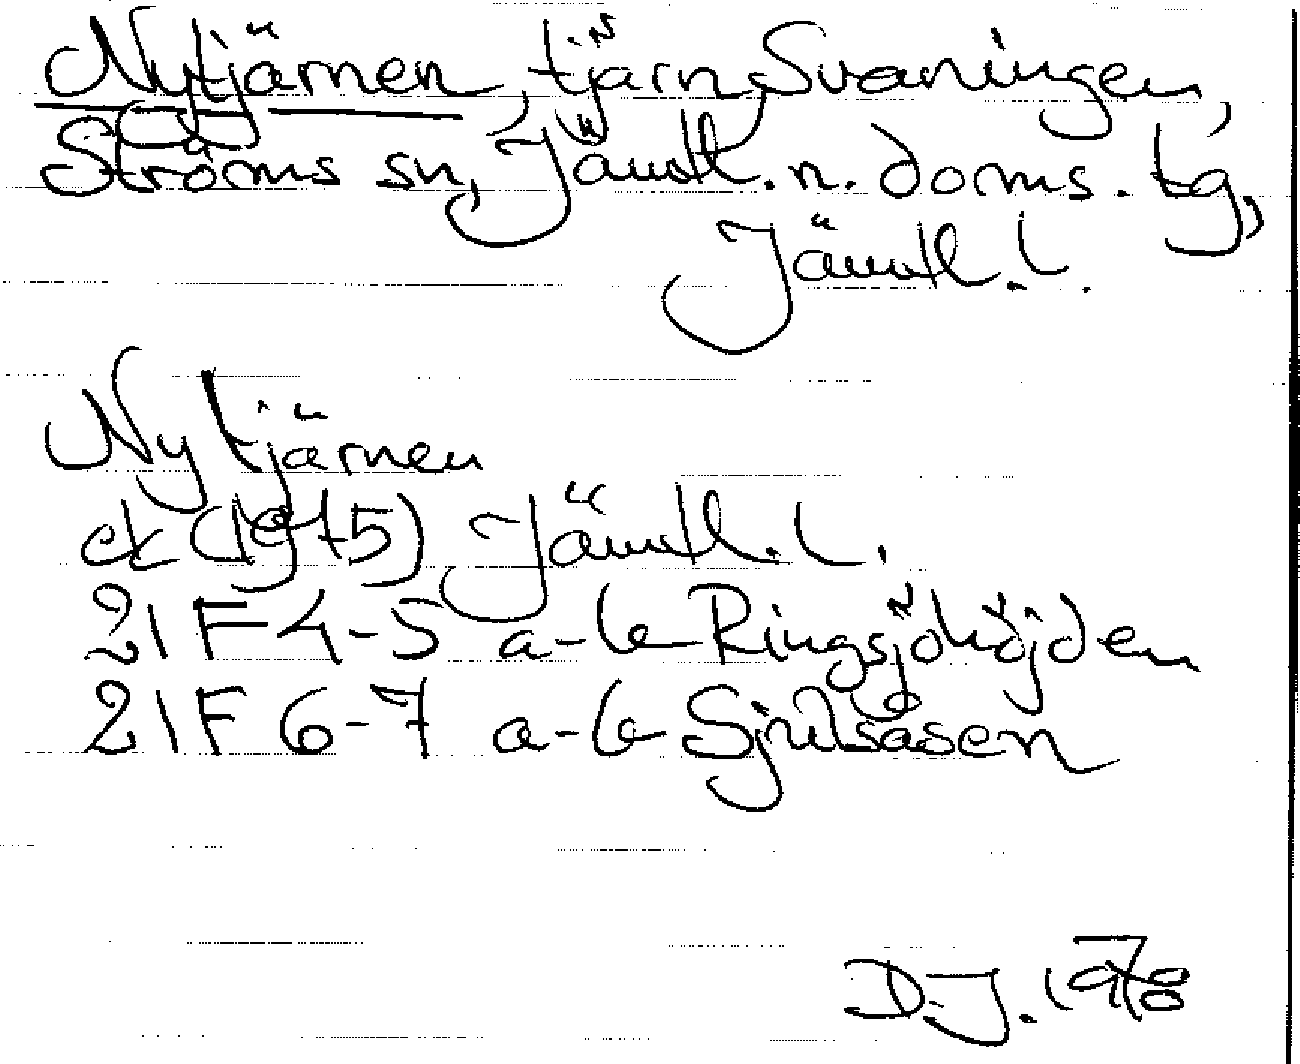 Nytjärnen, tjärn, Svaningen,
Ströms sn, Jämtl. n. doms. tg,
Jämtl. l.
Nytjärnen
ek (1975) Jämtl. l.
21 F 4-5 a-b Ringsjöhöjden
21 F 6-7 a-b Sjulsåsen
D.J. 1978